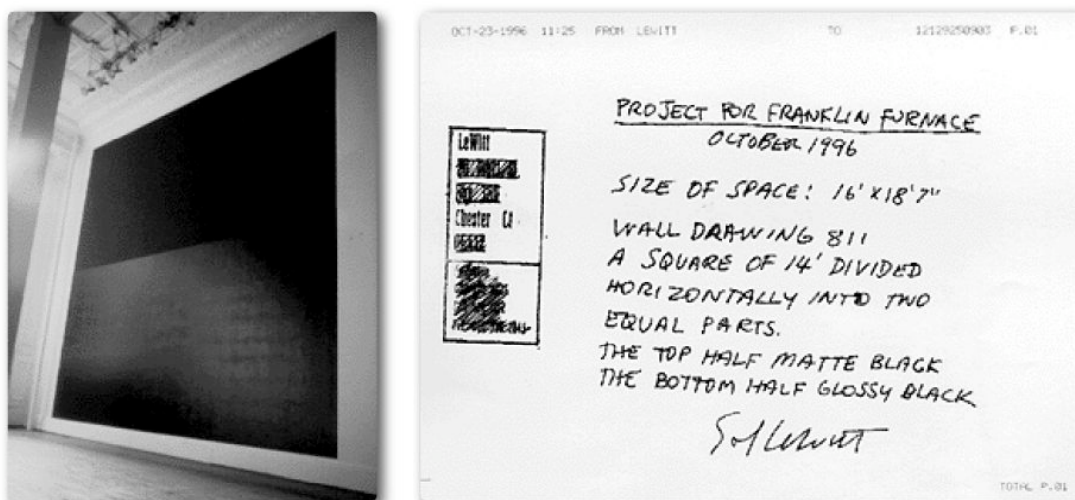 OCT-23-1996 11:25 FROM LEWITT TO 12129250903 P.01
PROJECT FOR FRANKLIN FURNACE
OCTOBER 1996
SIZE OF SPACE: 16' X 18'7"
WALL DRAWING 811
A SQUARE OF 14' DIVIDED
HORIZONTALLY INTO TWO
EQUAL PARTS.
THE TOP HALF MATTE BLACK
THE BOTTOM HALF GLOSSY BLACK
Sol LeWitt
LeWitt
Chester
TOTAL P.01